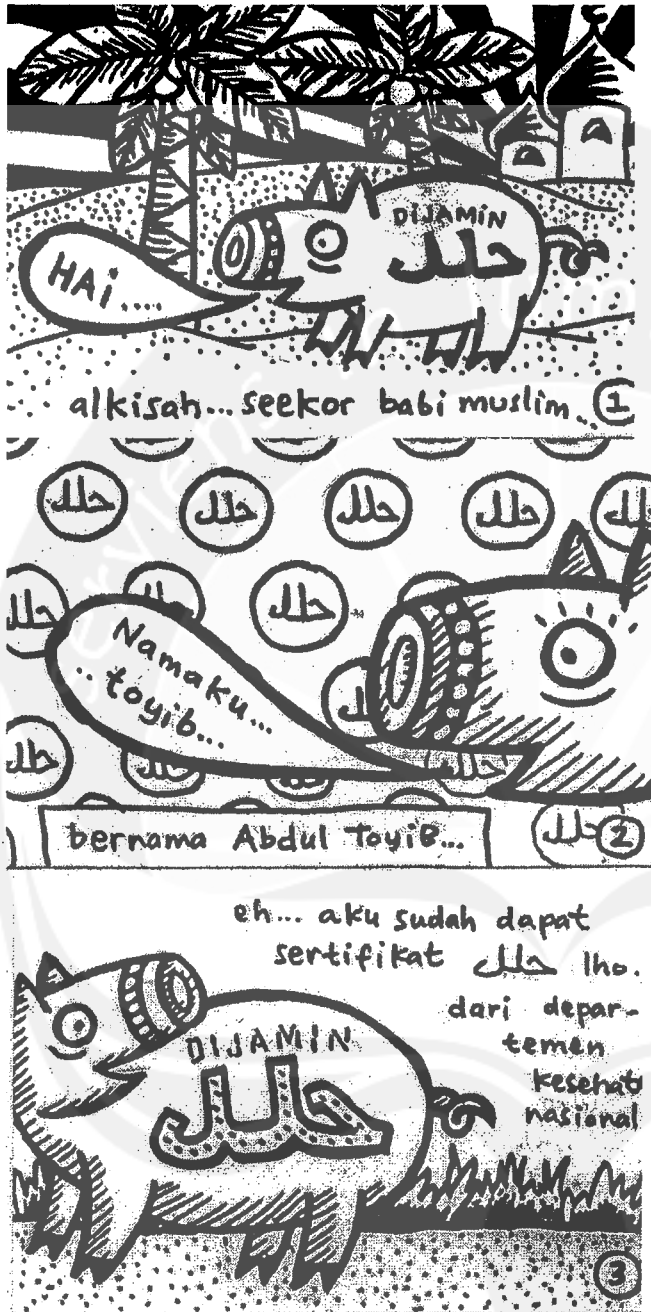 DIJAMIN
حلل
HAi....
alkisah... seekor babi muslim.. ①
حلل حلل حلل حلل
حلل
Namaku...
.. toyib...
bernama Abdul ToyiB...
②
eh... aku sudah dapat
sertifikat حلل lho.
dari depar-
temen
kesehat
nasional
DIJAMIN
حلل
③